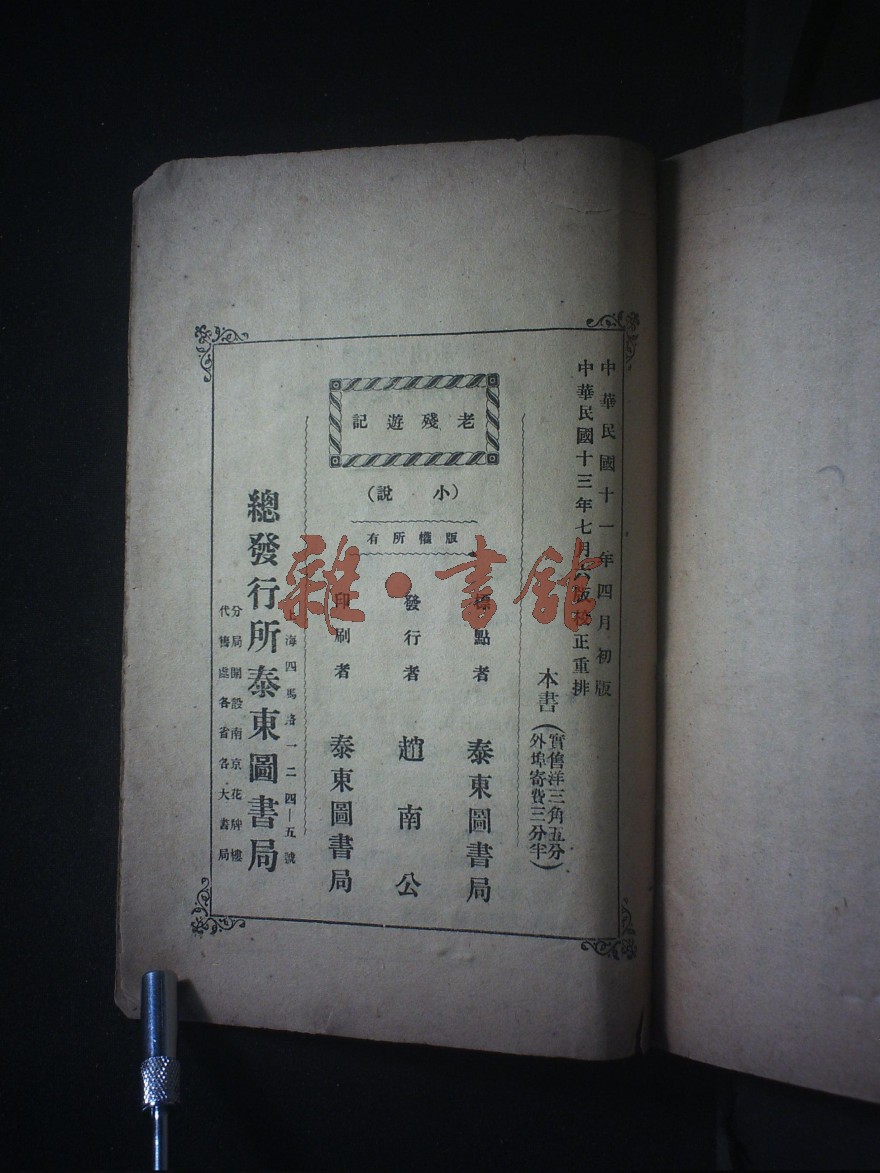 中華民國十一年四月初版
中華民國十三年七月六版校正重排
本書(實售洋三角五分
外埠寄費三分半)
老殘遊記
(小說)
版權所有
標點者 泰東圖書局
發行者 趙南公
印刷者 泰東圖書局
上海四馬路一二四—五號
總發行所泰東圖書局
分局開設南京花牌樓
代售處各省各大書局
雜·書館